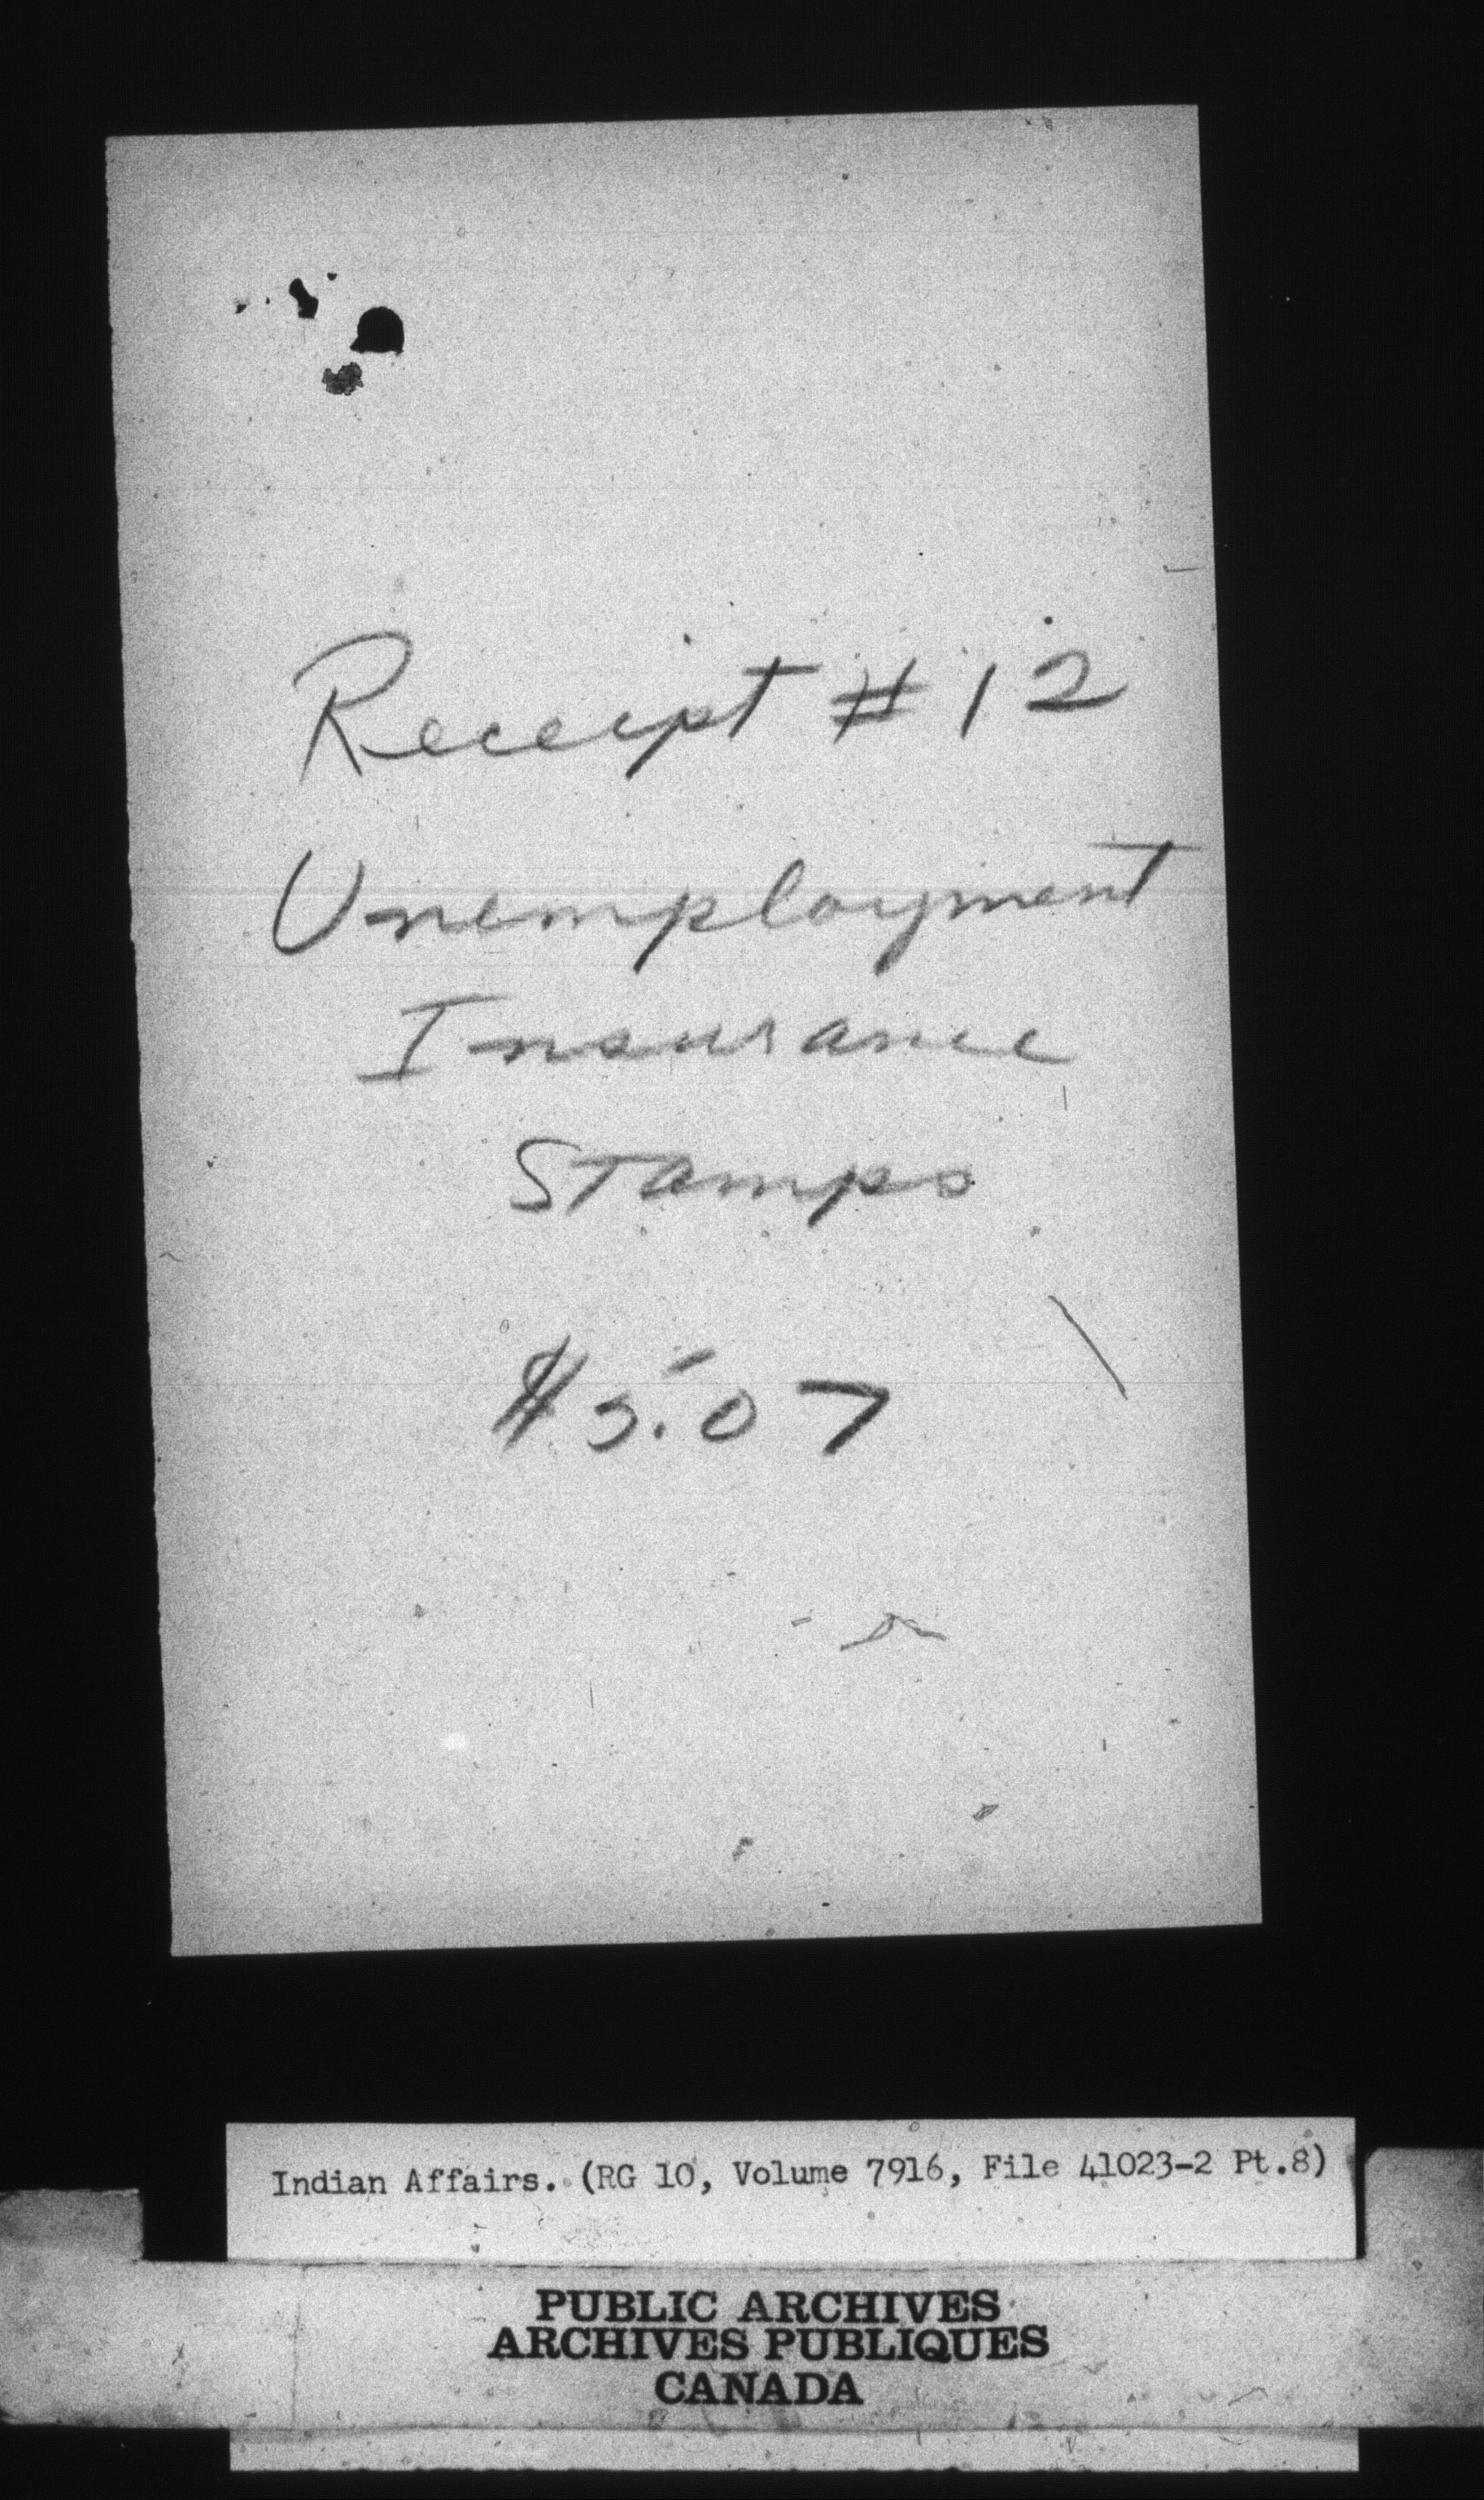 Receipt # 12
Unemployment
Insurance
Stamps
$5.07
Indian Affairs. (RG 10, Volume 7916, File 41023-2 Pt.8)
PUBLIC ARCHIVES
ARCHIVES PUBLIQUES
CANADA